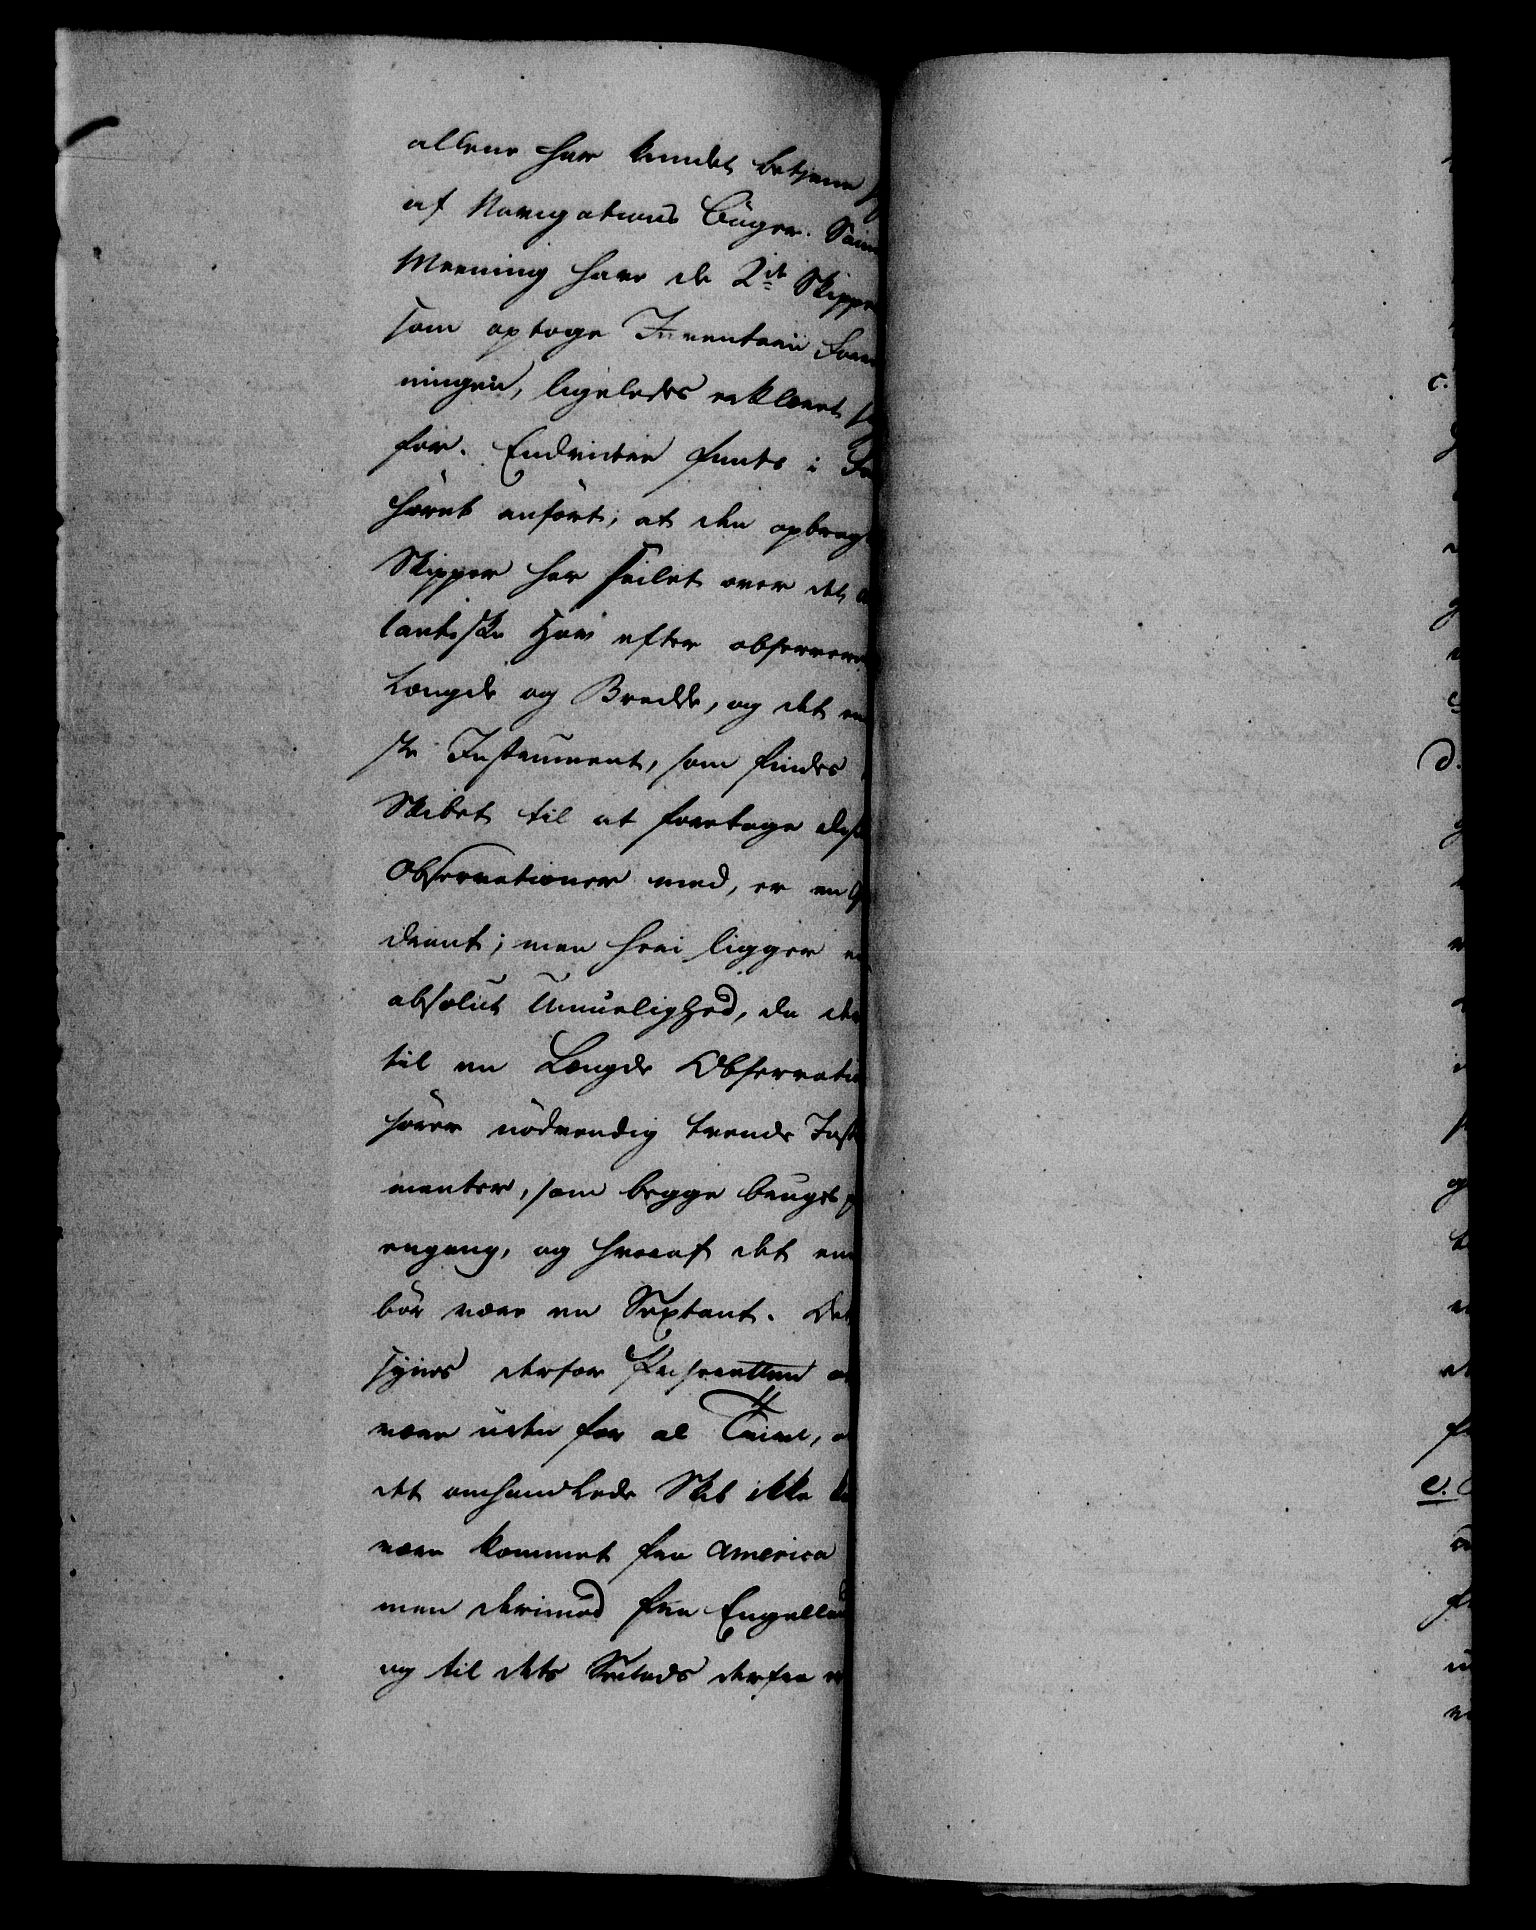 allene har kundet betjene
af Navigations Bøger. Sam
Meening have de 2de Skippe
som optoge Inventarii Forret
ningen, ligeledes erklæret sig
for. Endvidere fants i For
høret anført, at den opbragt
Skipper har seilet over det At
lantiske Hav efter observere
Længde og Bredde, og det ene
ste Instrument, som findes
Skibet til at foretage disse
Observationer med, er en Qva
drant; men heri ligger en
absolut Umuelighed, da der
til en Længde Observatio
hører nødvendig tvende Instru
menter, som begge bruges p
engang, og hvoraf det ene
bør være en Sextant. Det
synes derfor Priseretten at
være uden for al Tvivl, at
det omhandlede Skib ikke ka
være kommet fra America
men derimod fra Engelland
og til dets Seilads derfra er
c.
d.
e.